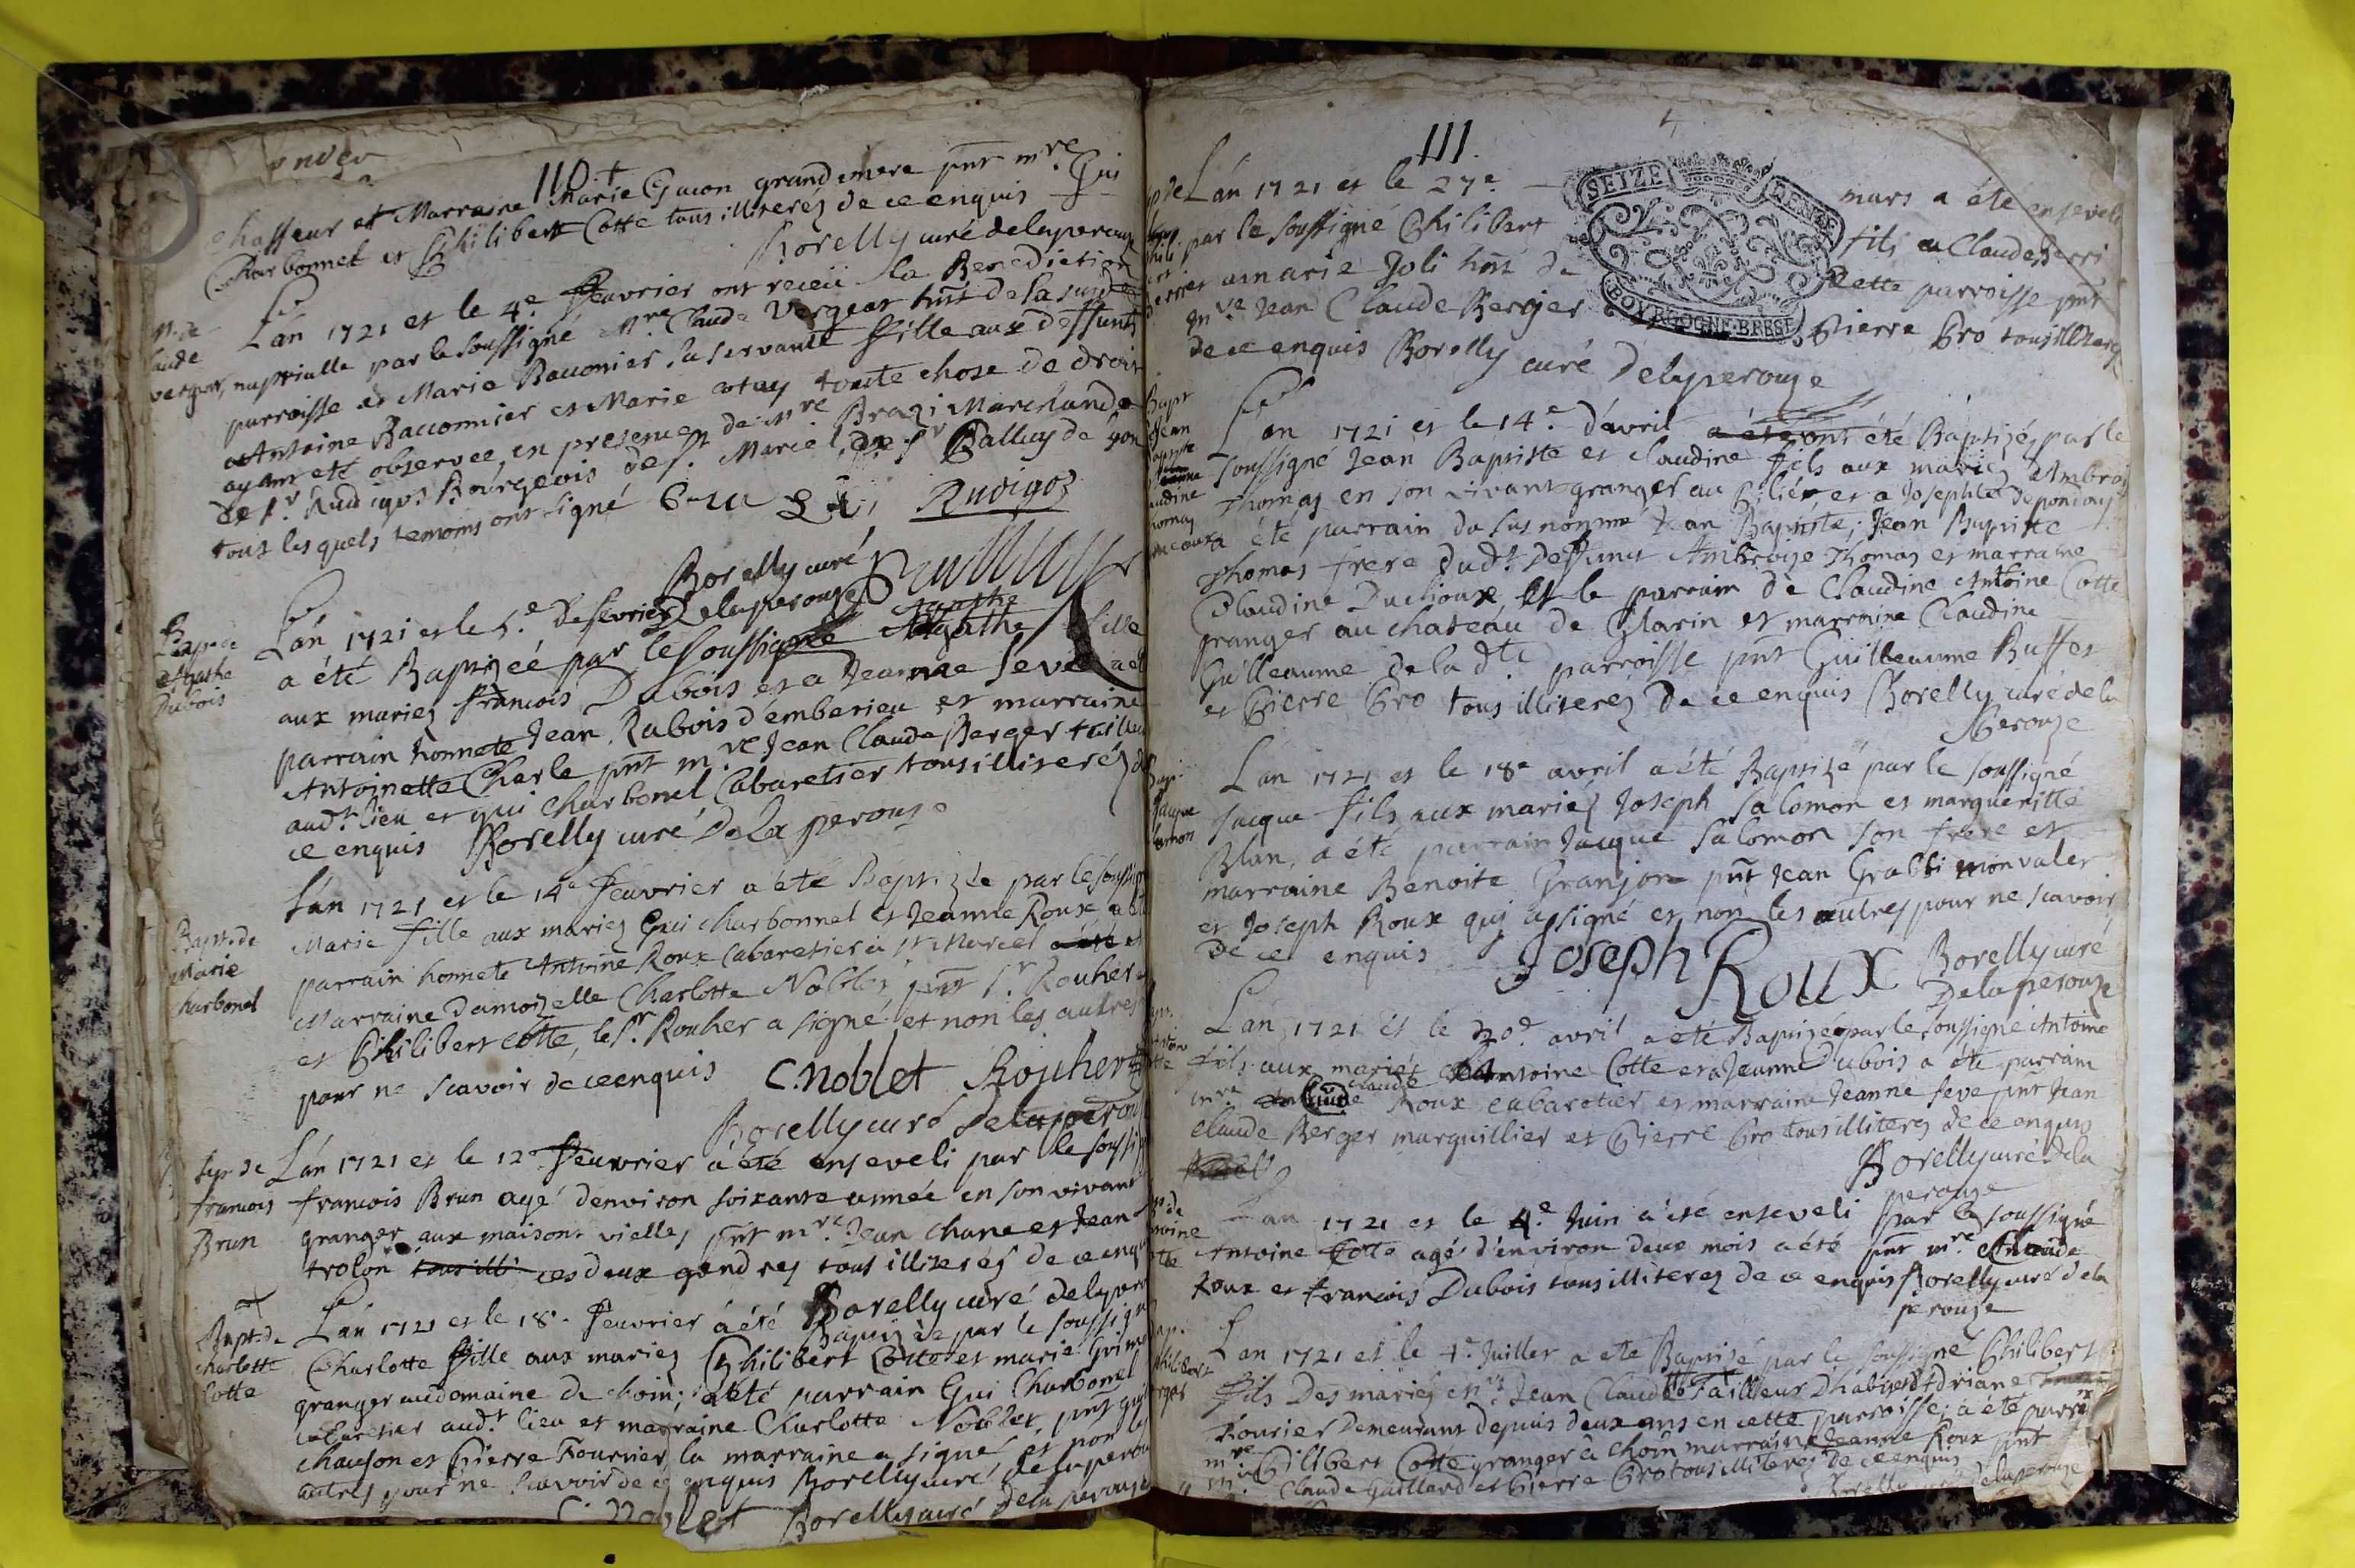 110
chasseur et Marraine Marie Guion grand mere pnt mre Gui
Charbonnet et Philibert Cotte tous illiterez de ce enquis
Borelly curé delaperouze
M. de
Claude
vergeat,
L'an 1721 et le 4e feuvrier ont receü la Benediction
nuptialle par le soussigné Mre Claude Vergeat hnt de la susde
parroisse et Marie Baconnier sa servante fille aux deffunts
Antoine Baconnier et Marie toute chose de droit
ayant eté observee en presence de Mre Marchand
de sr Rudigoz Bourgeois de St Marcel, de sr Balluy de Lyon
tous lesquels temoins ont signé
Rudigoz
Borelly curé
Delaperouze
Bapt de
Agathe
Dubois
L'an 1721 et le 5e de fevrier
a été Baptizée par le soussigné Agathe fille
aux mariez francois Dubois et a Jeanne Seve a eté
parrain honnete Jean Rabois d'emberieu et marraine
Antoinette Charle pnt mre Jean Claude Berger tailleur
audt lieu et gui Charbonel Cabaretier tous illiterez de
ce enquis Borelly curé De La perouse
Bapt. de
Marie
Charbonel
L'an 1721 et le 14e feuvrier a été Baptizée par le soussigné
Marie fille aux mariez Gui Charbonnel et Jeanne Roux a été
parrain honnete Antoine Roux Cabaretier a St Marcel et
Marraine damoizelle Charlotte Noblet, pnt Sr Rouher
et Philibert Cotte, le Sr Rouher a signé et non les autres
pour ne scavoir de ce enquis C. noblet Rouher
Borelly curé delaperouze
Sep. de
francois
Brun
L'an 1721 et le 12e feuvrier a été enseveli par le soussigné
francois Brun agé denviron soixante année en son vivant
granger aux maisons vielles pnt mre Jean chane et Jean
trolon ces deux gendres tous illiterés de ce enquis
Borelly curé delaperouze
Bapt. de
Charlotte
Cotte
L'an 1721 et le 18e feuvrier a été Baptizée par le soussigné
Charlotte fille aux mariez Philibert Cotte et marie
granger au domaine de choin; a été parrain Gui Charbonel
cabaretier audt lieu et marraine Charlotte Noblet, pnt
chanson et Pierre Fournier, la marraine a signé et non les
autres pour ne scavoir de ce enquis Borelly curé delaperouze
C. noblet Borelly curé Delaperouze
111.
L'an 1721 et le 27e mars a été enseveli
par le soussigné Philibert fils a Claude Perri
a marie Joli hnt de Cette parroisse pnt
mre Jean Claude Berger Pierre Gro tous illiterez
de ce enquis Borelly curé Delaperouze
SEIZE DENIERS
BOVRGOGNE BRESSE
Bapt
Jean
Baptiste
Claudine
Thomas
jumeaux
L'an 1721 et le 14e d'avril ont été Baptizés par le
soussigné Jean Baptiste et Claudine fils aux mariez Ambroise
Thomas en son vivant granger au et a Josephte
a été parrain du susnommé Jean Baptiste, Jean Baptiste
Thomas frere dudt deffunct Ambroize Thomas et marraine
Claudine Duclioux et le parrain de Claudine Antoine Cotte
granger au chateau de Glarin et marraine Claudine
Guilleaume de la dte parroisse pnt Guilleaume Buffet
et Pierre Gro tous illiterez de ce enquis Borelly curé dela
Perouze
Bapt.
Jacque
Salomon
L'an 1721 et le 18e avril a été Baptizé par le soussigné
Jacque fils aux mariéz Joseph Salomon et marguerite
Blan, a été parrain Jacque Salomon son frere et
marraine Benoite Granjon pnt Jean
et Joseph Roux qui a signé et non les autres pour ne scavoir
de ce enquis Joseph Roux Borelly curé
Delaperouze
L'an 1721 et le 20e avril a été Baptizé par le soussigné Antoine
fils aux mariés Antoine Cotte et a Jeanne Dubois a été parrain
mre Claude Roux cabaretier et marraine Jeanne Seve pnt Jean
claude Berger marguillier et Pierre Gro tous illiterez de ce enquis
Borelly curé dela
perouze
L'an 1721 et le 4e Juin a été enseveli par le soussigné
Antoine Cotte agé d'environ deux mois a été pnt mre Claude
Roux et francois Dubois tous illiterez de ce enquis Borelly curé dela
perouze
Bap.
Philibert
L'an 1721 et le 4e Juillet a été Baptisé par le soussigné Philibert
fils Des mariez mre Jean Claude Tailleur D'habits et Adriane
Fourier Demeurant depuis deux ans en cette parroisse; a été parrin
mre Philibert Cotte granger a choin marraine Jeanne Roux pnt
mre Claude Gaillard et Pierre Gro tous illiterez de ce enquis
Borelly curé delaperouze